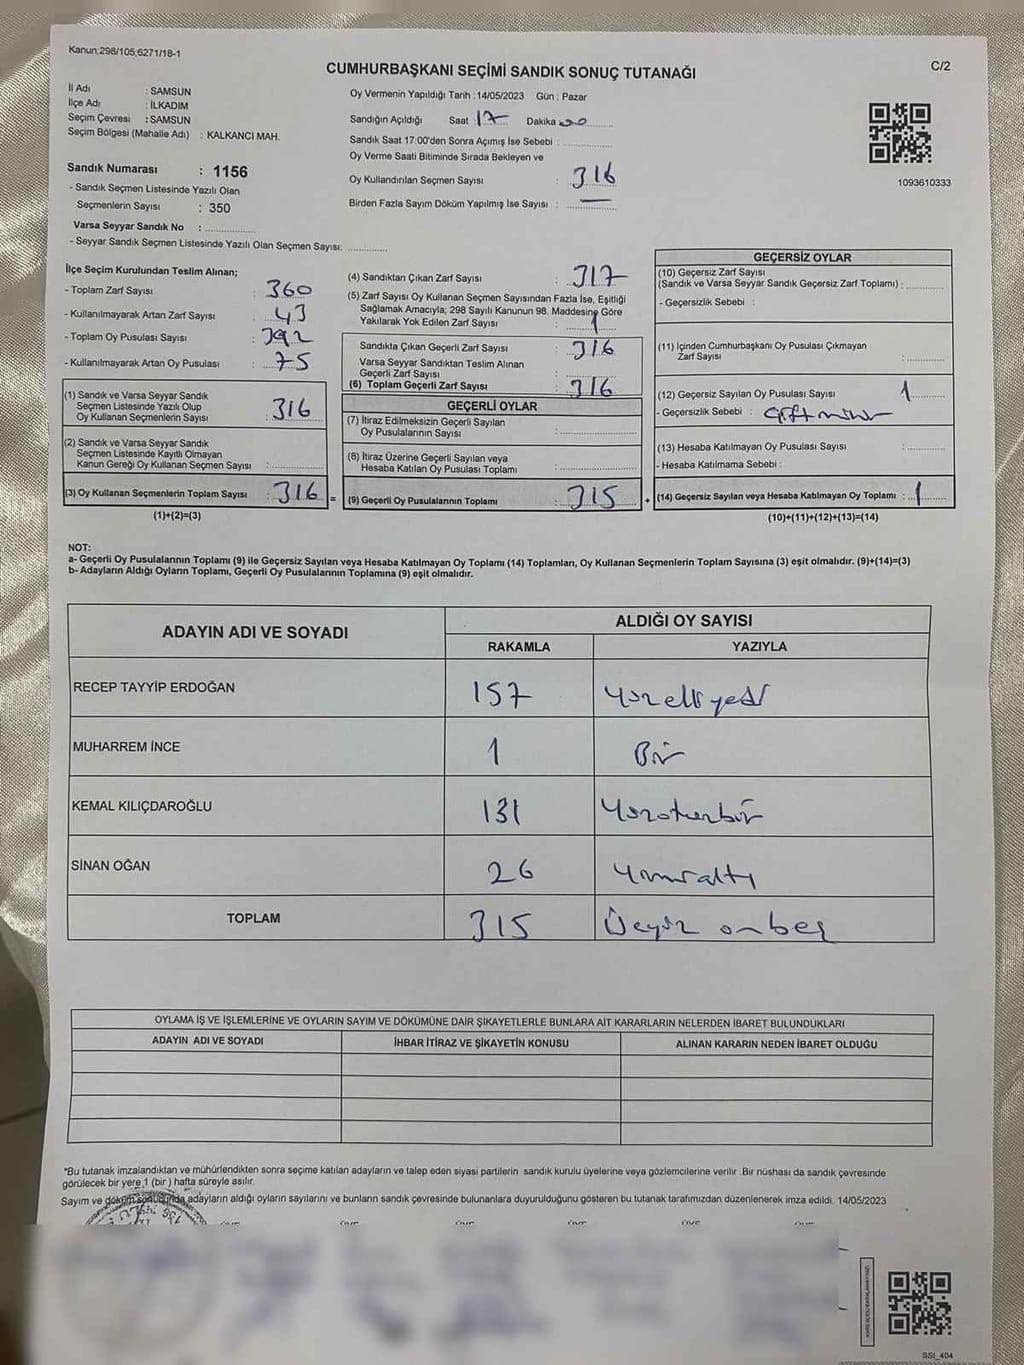 Kanun;298/105;6271/18-1
CUMHURBAŞKANI SEÇİMİ SANDIK SONUÇ TUTANAĞI
C/2
İl Adı : SAMSUN
İlçe Adı : İLKADIM
Seçim Çevresi : SAMSUN
Seçim Bölgesi (Mahalle Adı) : KALKANCI MAH.
Sandık Numarası : 1156
- Sandık Seçmen Listesinde Yazılı Olan
Seçmenlerin Sayısı : 350
Varsa Seyyar Sandık No :
- Seyyar Sandık Seçmen Listesinde Yazılı Olan Seçmen Sayısı:
Oy Vermenin Yapıldığı Tarih : 14/05/2023 Gün : Pazar
Sandığın Açıldığı Saat : 17 Dakika : 00
Sandık Saat 17:00'den Sonra Açımış İse Sebebi :
Oy Verme Saati Bitiminde Sırada Bekleyen ve
Oy Kullandırılan Seçmen Sayısı : 316
Birden Fazla Sayım Döküm Yapılmış İse Sayısı : —
1093610333
İlçe Seçim Kurulundan Teslim Alınan;
- Toplam Zarf Sayısı : 360
- Kullanılmayarak Artan Zarf Sayısı : 43
- Toplam Oy Pusulası Sayısı : 392
- Kullanılmayarak Artan Oy Pusulası : 75
(1) Sandık ve Varsa Seyyar Sandık
Seçmen Listesinde Yazılı Olup
Oy Kullanan Seçmenlerin Sayısı : 316
(2) Sandık ve Varsa Seyyar Sandık
Seçmen Listesinde Kayıtlı Olmayan
Kanun Gereği Oy Kullanan Seçmen Sayısı :
(3) Oy Kullanan Seçmenlerin Toplam Sayısı : 316 =
(1)+(2)=(3)
(4) Sandıktan Çıkan Zarf Sayısı : 317
(5) Zarf Sayısı Oy Kullanan Seçmen Sayısından Fazla İse, Eşitliği
Sağlamak Amacıyla; 298 Sayılı Kanunun 98. Maddesine Göre
Yakılarak Yok Edilen Zarf Sayısı : 1
Sandıkta Çıkan Geçerli Zarf Sayısı : 316
Varsa Seyyar Sandıktan Teslim Alınan
Geçerli Zarf Sayısı :
(6) Toplam Geçerli Zarf Sayısı : 316
GEÇERLİ OYLAR
(7) İtiraz Edilmeksizin Geçerli Sayılan
Oy Pusulalarının Sayısı :
(8) İtiraz Üzerine Geçerli Sayılan veya
Hesaba Katılan Oy Pusulası Toplamı :
(9) Geçerli Oy Pusulalarının Toplamı : 315 +
GEÇERSİZ OYLAR
(10) Geçersiz Zarf Sayısı
(Sandık ve Varsa Seyyar Sandık Geçersiz Zarf Toplamı) :
- Geçersizlik Sebebi :
(11) İçinden Cumhurbaşkanı Oy Pusulası Çıkmayan
Zarf Sayısı :
(12) Geçersiz Sayılan Oy Pusulası Sayısı : 1
- Geçersizlik Sebebi : Çift mühür
(13) Hesaba Katılmayan Oy Pusulası Sayısı :
- Hesaba Katılmama Sebebi :
(14) Geçersiz Sayılan veya Hesaba Katılmayan Oy Toplamı : 1
(10)+(11)+(12)+(13)=(14)
NOT:
a- Geçerli Oy Pusulalarının Toplamı (9) ile Geçersiz Sayılan veya Hesaba Katılmayan Oy Toplamı (14) Toplamları, Oy Kullanan Seçmenlerin Toplam Sayısına (3) eşit olmalıdır. (9)+(14)=(3)
b- Adayların Aldığı Oyların Toplamı, Geçerli Oy Pusulalarının Toplamına (9) eşit olmalıdır.
ADAYIN ADI VE SOYADI
ALDIĞI OY SAYISI
RAKAMLA YAZIYLA
RECEP TAYYİP ERDOĞAN 157 Yüzelliyedi
MUHARREM İNCE 1 Bir
KEMAL KILIÇDAROĞLU 131 Yüzotuzbir
SİNAN OĞAN 26 Yirmialtı
TOPLAM 315 Üçyüz onbeş
OYLAMA İŞ VE İŞLEMLERİNE VE OYLARIN SAYIM VE DÖKÜMÜNE DAİR ŞİKAYETLERLE BUNLARA AİT KARARLARIN NELERDEN İBARET BULUNDUKLARI
ADAYIN ADI VE SOYADI İHBAR İTİRAZ VE ŞİKAYETİN KONUSU ALINAN KARARIN NEDEN İBARET OLDUĞU
*Bu tutanak imzalandıktan ve mühürlendikten sonra seçime katılan adayların ve talep eden siyasi partilerin sandık kurulu üyelerine veya gözlemcilerine verilir .Bir nüshası da sandık çevresinde
görülecek bir yere 1 (bir ) hafta süreyle asılır.
Sayım ve döküm sonucunda adayların aldığı oyların sayılarını ve bunların sandık çevresinde bulunanlara duyurulduğunu gösteren bu tutanak tarafımızdan düzenlenerek imza edildi. 14/05/2023
SSI_404